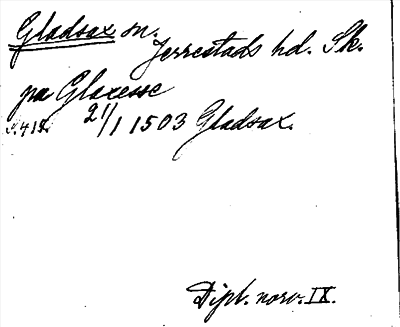 Gladsax sn.
Jerrestads hd. Sk.
pa Glaxesse
s. 415. 21/1 1503 Gladsax.
Dipl. norv. IX.